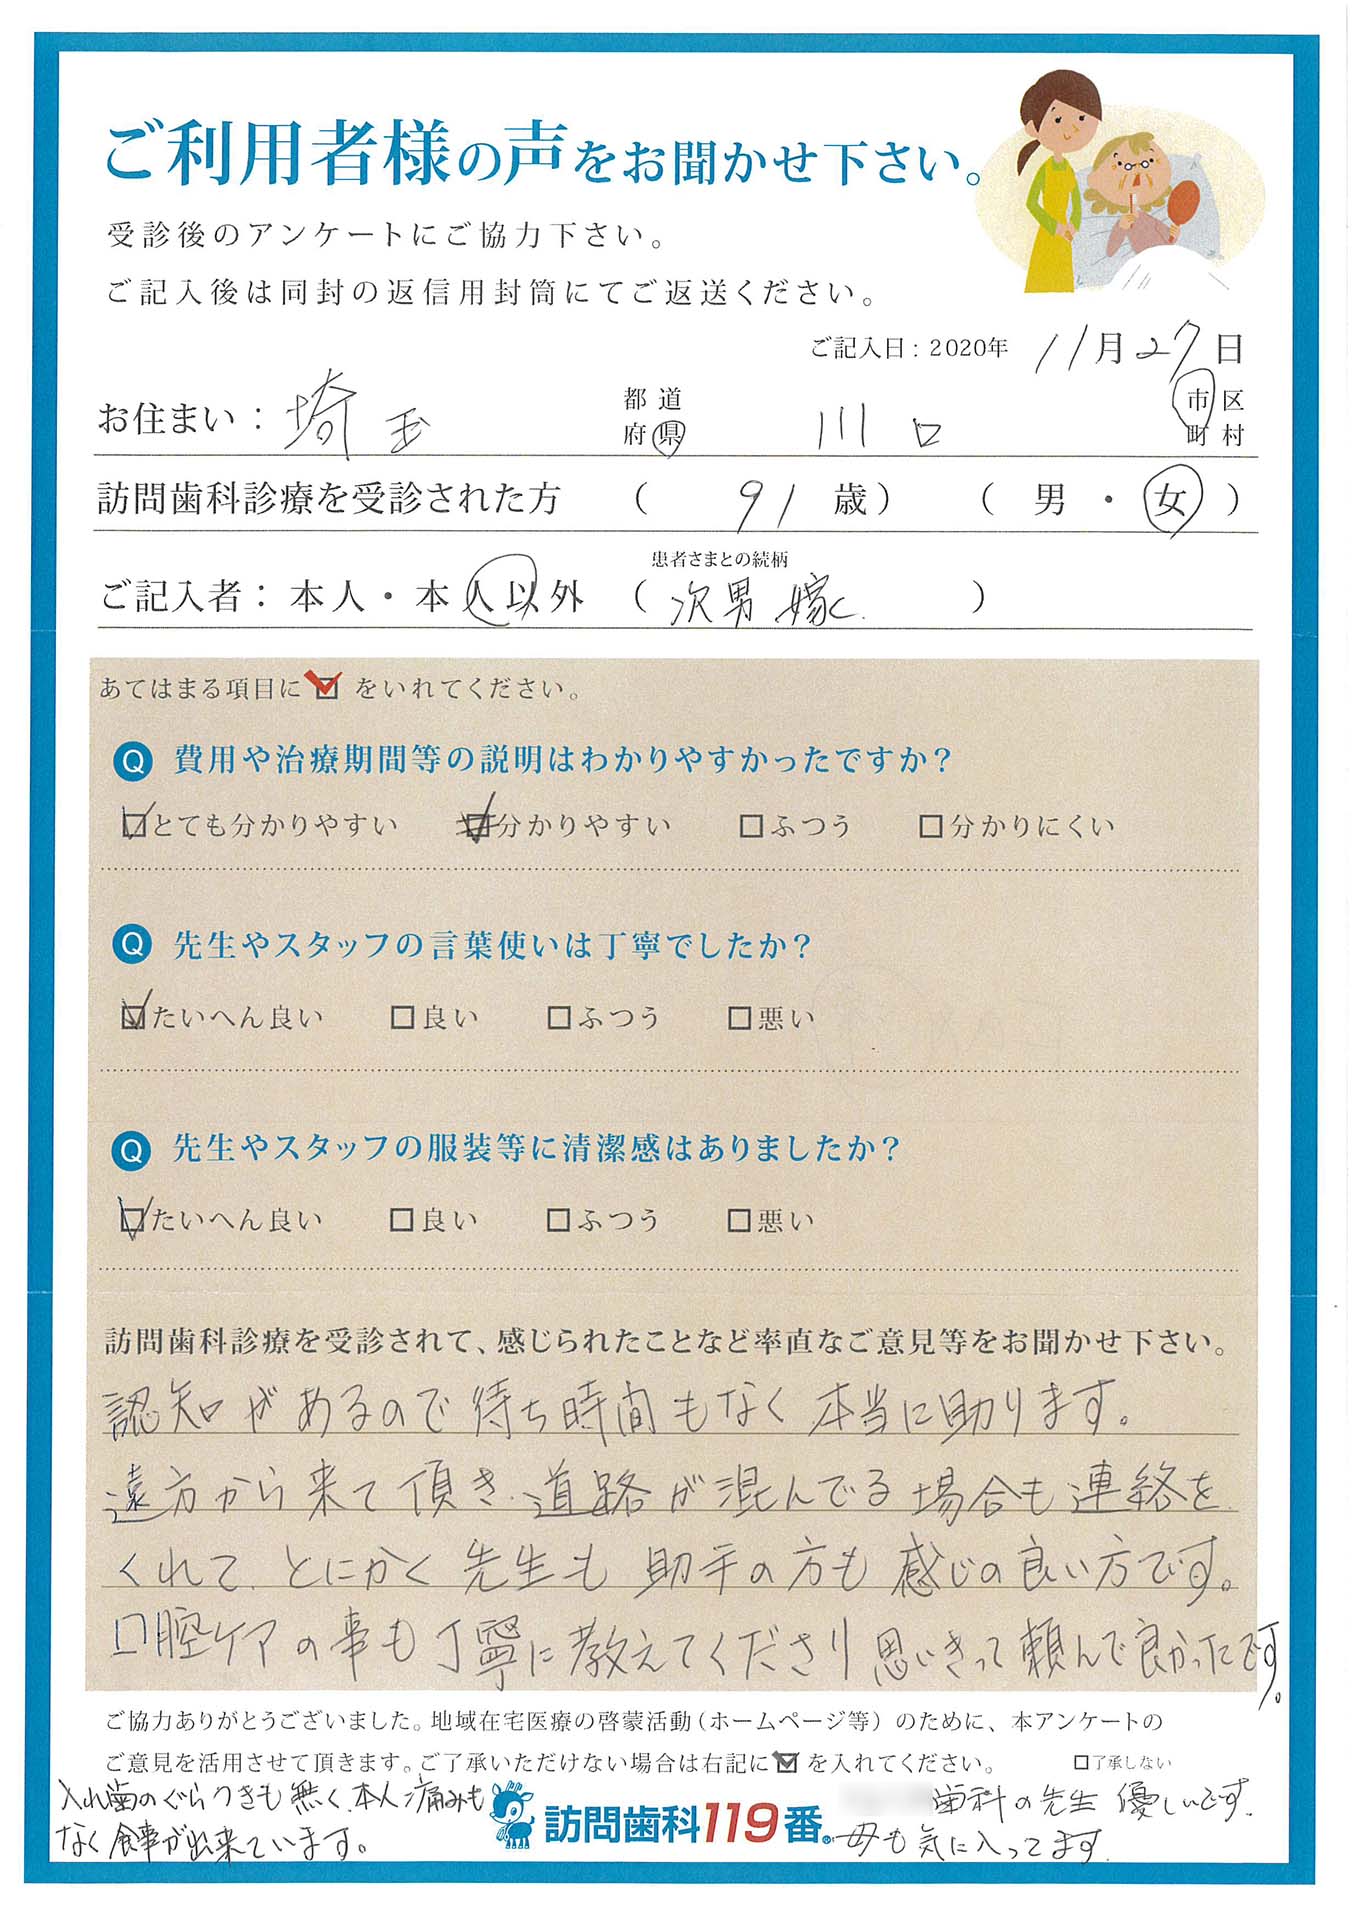 ご利用者様の声をお聞かせ下さい。
受診後のアンケートにご協力下さい。
ご記入後は同封の返信用封筒にてご返送ください。
ご記入日：2020年 11月27日
お住まい： 埼玉 都道府県 川口 市区町村
訪問歯科診療を受診された方 （ 91 歳） （ 男 ・ 女 ）
患者さまとの続柄
ご記入者：本人・本人以外 （ 次男 嫁 ）
あてはまる項目に☑をいれてください。
Q 費用や治療期間等の説明はわかりやすかったですか？
☑とても分かりやすい ☑分かりやすい □ふつう □分かりにくい
Q 先生やスタッフの言葉使いは丁寧でしたか？
☑たいへん良い □良い □ふつう □悪い
Q 先生やスタッフの服装等に清潔感はありましたか？
☑たいへん良い □良い □ふつう □悪い
訪問歯科診療を受診されて、感じられたことなど率直なご意見等をお聞かせ下さい。
認知があるので待ち時間もなく本当に助ります。
遠方から来て頂き、道路が混んでる場合も連絡を
くれて、とにかく先生も助手の方も感じの良い方です。
口腔ケアの事も丁寧に教えてくださり思いきって頼んで良かったです。
ご協力ありがとうございました。地域在宅医療の啓蒙活動（ホームページ等）のために、本アンケートの
ご意見を活用させて頂きます。ご了承いただけない場合は右記に☑を入れてください。 □了承しない
入れ歯のぐらつきも無く、本人痛みも
なく食事が出来ています。
訪問歯科119番®
歯科の先生優しいです。
母も気に入ってます